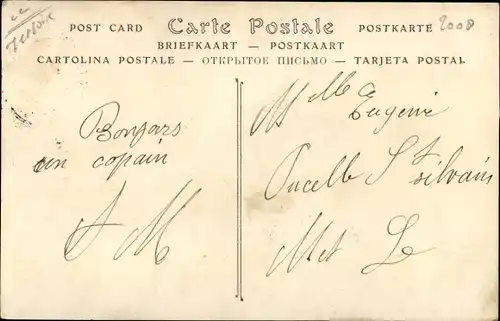 POST CARD Carte Postale POSTKARTE
BRIEFKAART — POSTKAART
CARTOLINA POSTALE — ОТКРЫТОЕ ПИСЬМО — TARJETA POSTAL
2008
Bonjars
un copain
S M
Eugenie
Pucelle St Silvain
Met Le